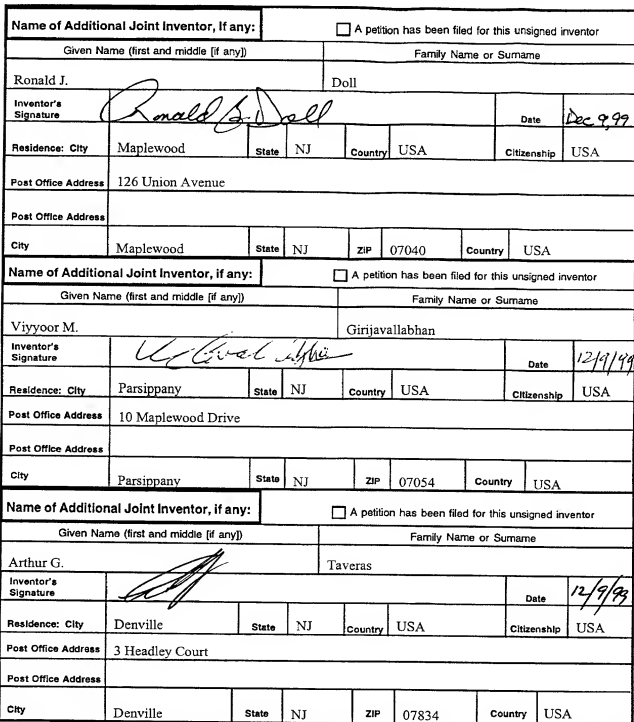 Name of Additional Joint Inventor, if any: A petition has been filed for this unsigned inventor
Given Name (first and middle [if any]) Family Name or Surname
Ronald J. Doll
Inventor's Signature Ronald J. Doll Date Dec 9, 99
Residence: City Maplewood State NJ Country USA Citizenship USA
Post Office Address 126 Union Avenue
Post Office Address
City Maplewood State NJ ZIP 07040 Country USA
Name of Additional Joint Inventor, if any: A petition has been filed for this unsigned inventor
Given Name (first and middle [if any]) Family Name or Surname
Viyyoor M. Girijavallabhan
Inventor's Signature Date 12/9/99
Residence: City Parsippany State NJ Country USA Citizenship USA
Post Office Address 10 Maplewood Drive
Post Office Address
City Parsippany State NJ ZIP 07054 Country USA
Name of Additional Joint Inventor, if any: A petition has been filed for this unsigned inventor
Given Name (first and middle [if any]) Family Name or Surname
Arthur G. Taveras
Inventor's Signature Date 12/9/99
Residence: City Denville State NJ Country USA Citizenship USA
Post Office Address 3 Headley Court
Post Office Address
City Denville State NJ ZIP 07834 Country USA